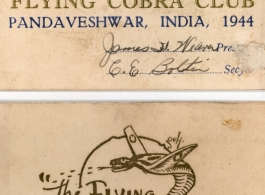 FLYING COBRA CLUB
PANDAVESHWAR, INDIA, 1944
James H. Weaver Pres
C. E. Bottin Sec
"the FLYING